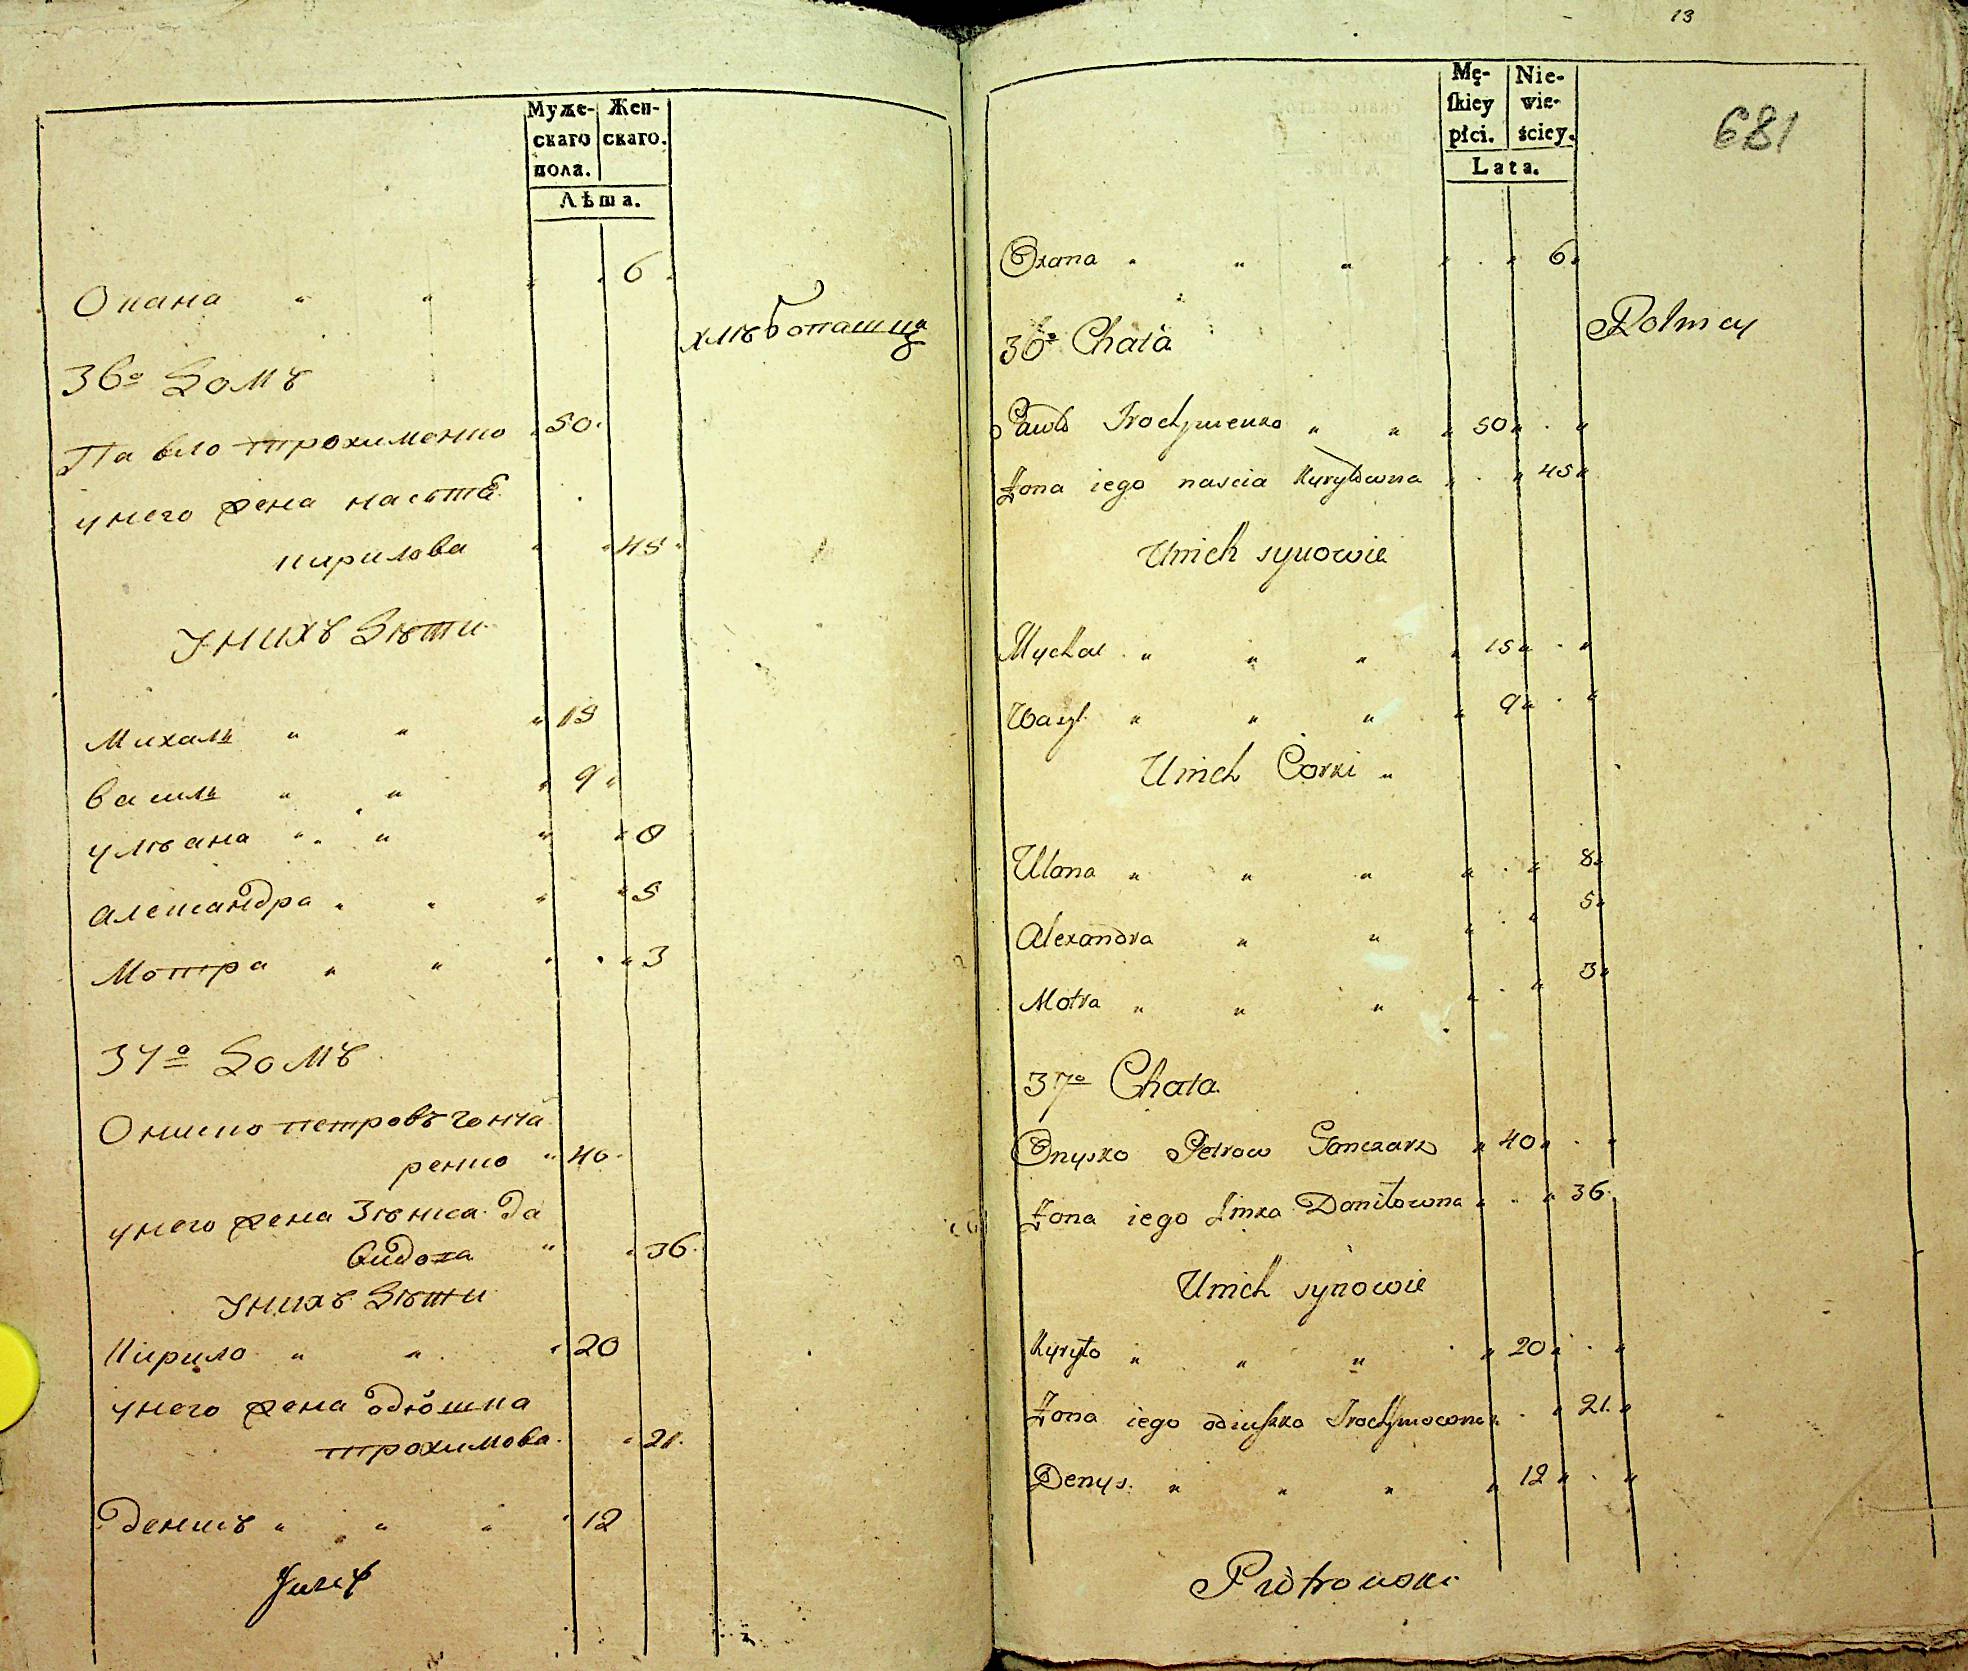 Муже-
скаго
пола.
Жен-
скаго.
Лѣта.
Окана " " 6
хлѣбопашцы
36º Домъ
Павло трохименко 50
у него жена настя
кирилова 45
У нихъ дѣти
Михаль " " 15
василь " " 9
ульяна " " 8
александра " " 5
Мотра " " 3
37º Домъ
Ониско петровъ гонча
ренко 40
у него жена Зѣнка да
видоха 36
У нихъ дѣти
Кирило " " 20
у него жена одюшка
трохимова 21
денисъ " " " 12
Juzef
13
681
Mę-
ſkiey
płci.
Nie-
wie-
ściey.
Lata.
Oxana " " " 6
36º Chata
Rolnicy
Pawło Trochymenko " " 50
Żona iego nascia Kuryłowna 45
Unich synowie
Mychal " " " 15
Wasyl " " " 9
Unich Corki "
Ulana " " " 8
Alexandra " " 5
Motra " " " 3
37º Chata
Onysko Petrow Gonczarz 40
Żona iego Zinka Daniłowna 36
Unich synowie
Kyryło " " " 20
Żona iego odiuszka Trochymowna 21
Denys " " " 12
Piotrowski